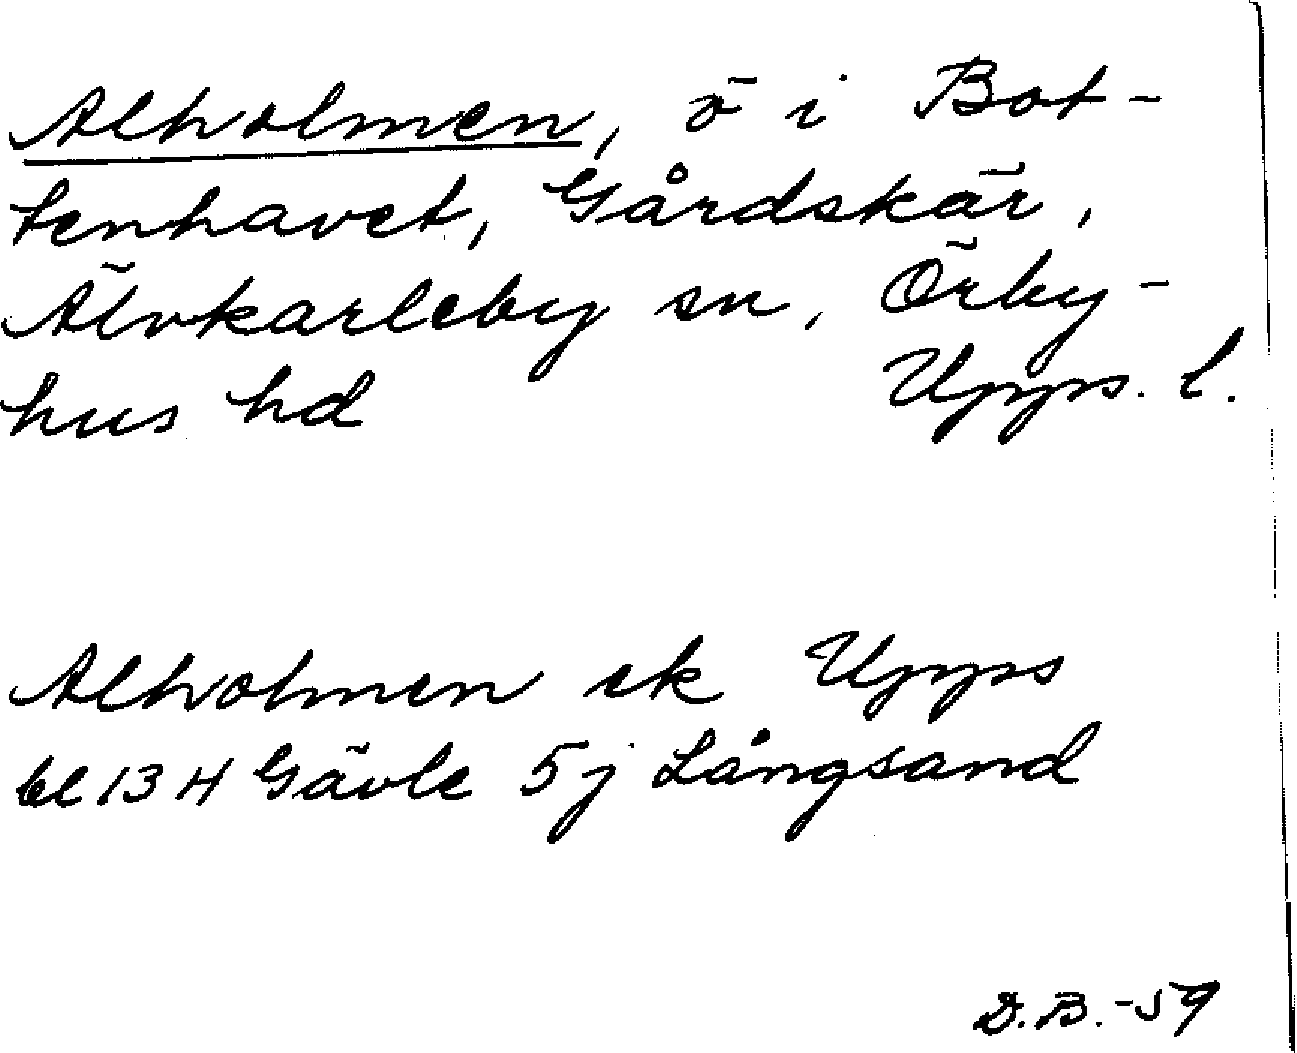 Alholmen, ö i Bot-
tenhavet, Gårdskär,
Älvkarleby sn, Örby-
hus hd Upps. l.
Alholmen ek Upps
bl 13 H Gävle 5j Långsand
D.B. -59